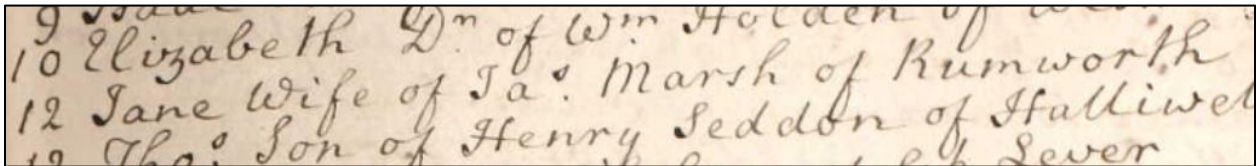 9 Isaac
10 Elizabeth Dn. of Wm Holden of
12 Jane Wife of Jas. Marsh of Rumworth
Thos. Son of Henry Seddon of Halliwel
Lever